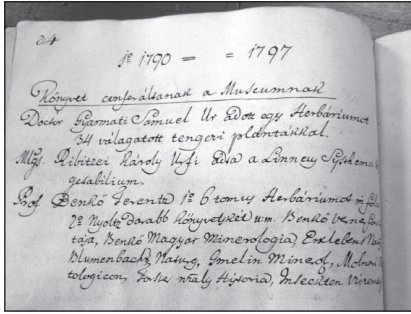 24
1º 1790 = = 1797
Könyvet conferáltanak a Museumnak
Doctor Gyarmati Sámuel Ur adott egy Herbáriumot
34 válagatott tengeri plántákkal.
Mlgs. Ribitzei Károly Urfi adta a Linneus Systhema
getabilium.
Prof Benkő Ferentz 1º 6 tomus Herbáriumot in
2º Nyoltz darabb Könyvetskét u.m. Benkő
tája, Benkő Magyar Minerologia, Erxleben
Blumenbachs Naturg, Gmelin Minerol, Molnar
tologicon, Hystoria, Inseckten